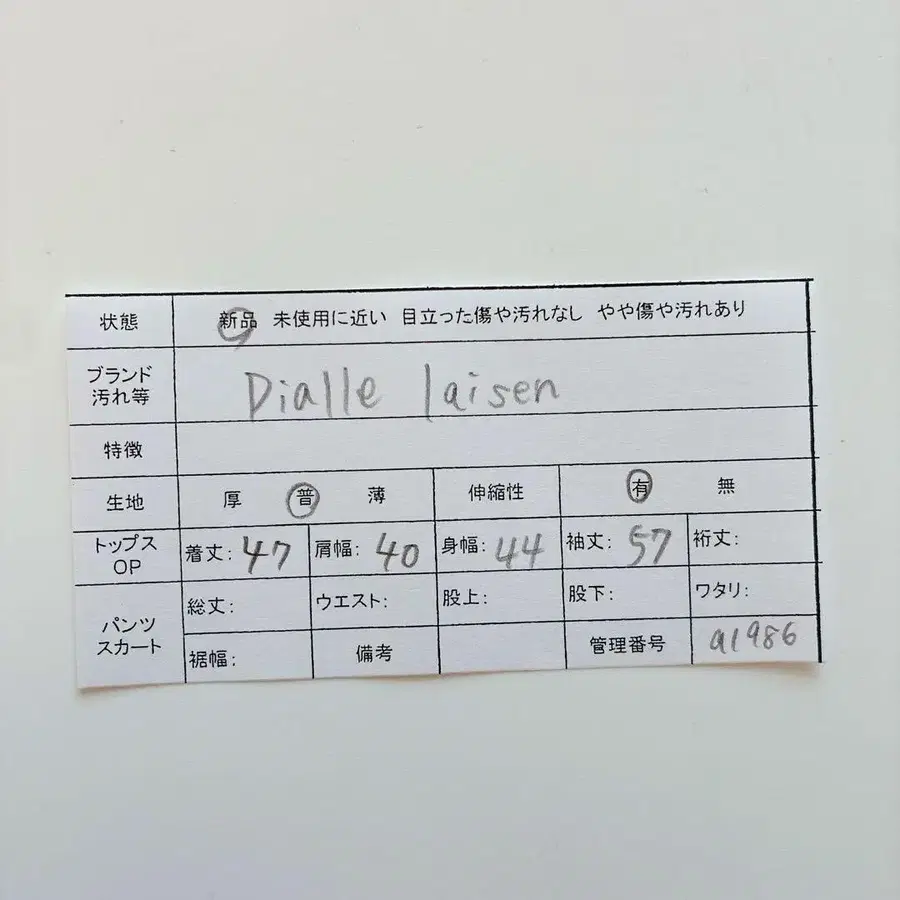 状態 新品 未使用に近い 目立った傷や汚れなし やや傷や汚れあり
ブランド
汚れ等 Dialle laisen
特徴
生地 厚 普 薄 伸縮性 有 無
トップス
OP 着丈: 47 肩幅: 40 身幅: 44 袖丈: 57 裄丈:
パンツ
スカート 総丈: ウエスト: 股上: 股下: ワタリ:
裾幅: 備考 管理番号 a1986